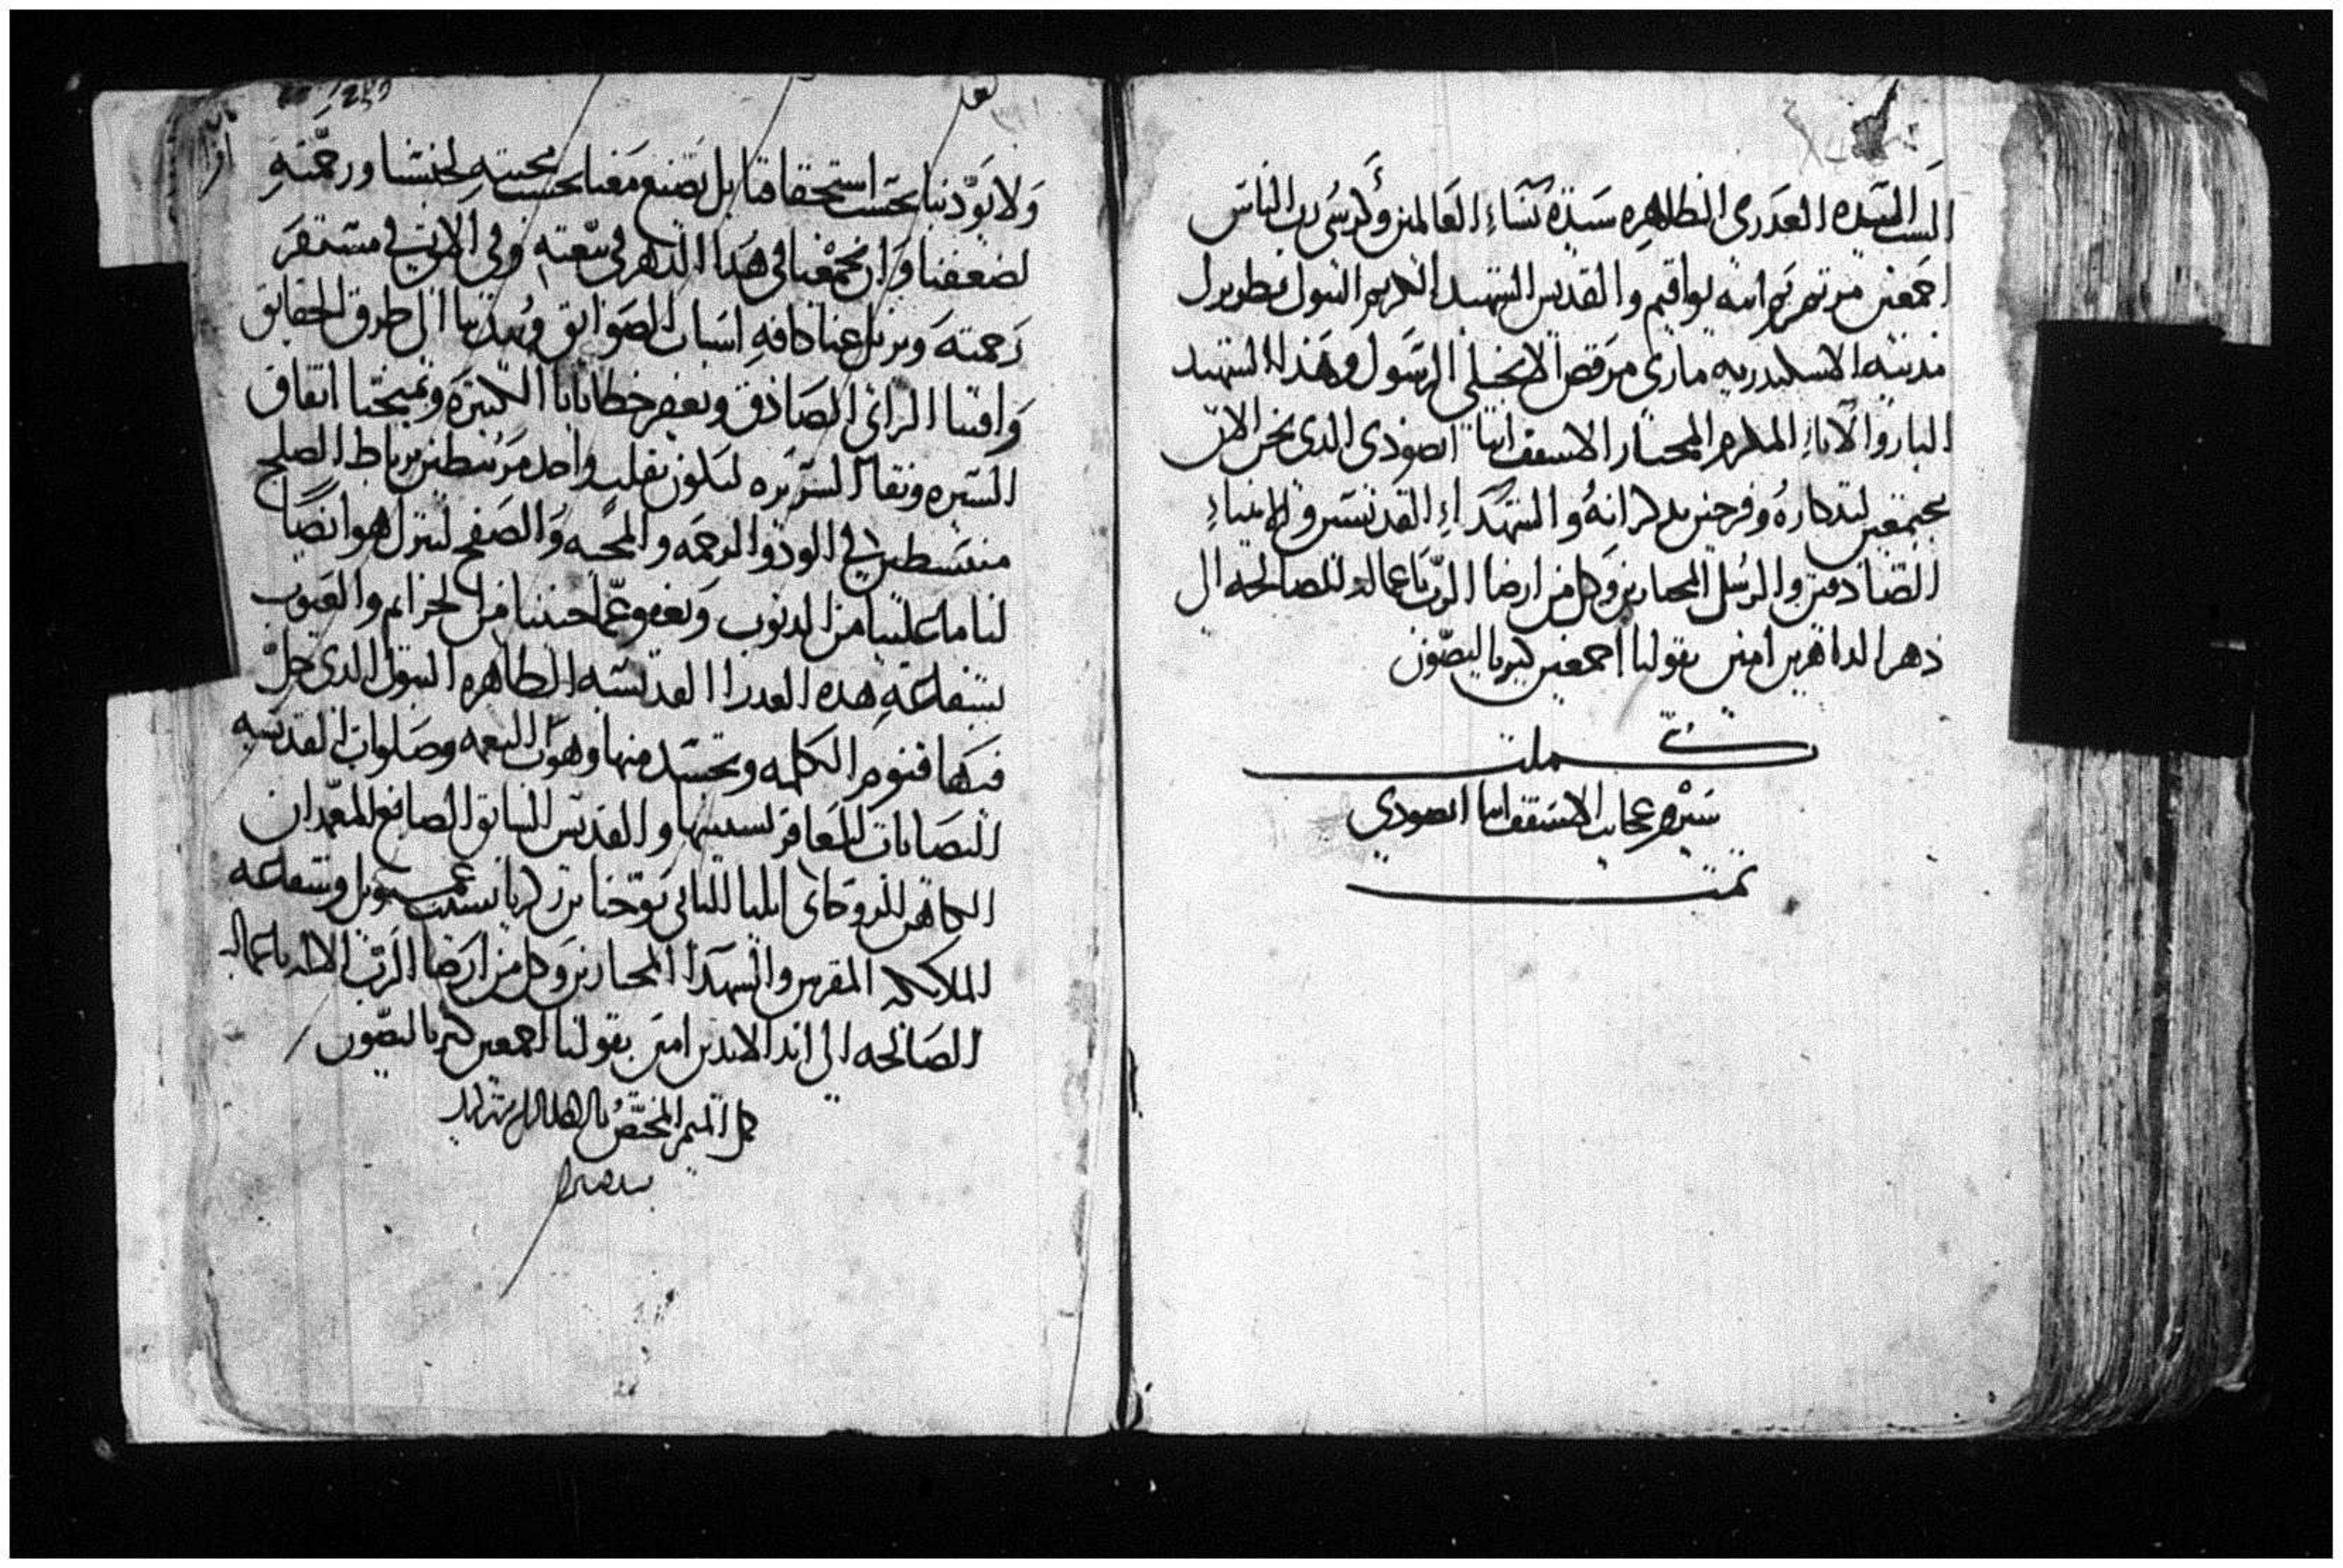 الست السيده العدرى الطاهره سيدة نساء العالمين وكرسى رب الناس
اجمعين مرتمريم ابنه يواقيم والقديس الشهيد الكريم البتول بطريرك
مدينه الاسكندريه مارى مرقص الانجيلى الرسول وهذا الشهيد
البار والاباء المكرم المختار الاسقف انبا ابصودى الدى نحن الان
مجتمعين لتدكاره وفرحين بدكرانه والشهداء القديسين والانبياء
الصادقين والرسل المختارين وكل من ارضا الرب باعماله الصالحه الى
دهر الداهرين امين بقولنا اجمعين كيرياليصون
كملت
سيره عجايب الاسقف انبا ابصودي
تمت
ولا يودبنا بحسب استحقاقنا بل يصنع معنا بحسب محبته لجنسنا ورحمته
لضعفنا وان يجمعنا فى هدا الدهر فى بيعته وفى الاتى فى مستقر
رحمته ويزيل عنا كافه اسباب الصوايق ويهدينا الى طرق الحقايق
وافتنا الراى الصادق ويغفر خطايانا الكتيره ويمنحنا اتفاق
السيره ونقا السريره لنكون بقلب واحد مرتبطين برباط الصلح
منبسطين فى الود والرحمه والمحبه والصفح ليترك هو ايضًا
لنا ما علينا من الدنوب ويعفو عما جنينا من الجرايم والعيوب
بشفاعة هده العدرا القديسه الطاهره البتول الدى حل
فيها اقنوم الكلمه وتجسد منها وهو رب النعمه وصلوات القديسه
اليصابات العاقر نسيبتها والقديس السابق الصابغ المعمدان
الكاهن اللدوقاى ايليا التانى يوحنا بن زكريا نسيب عمنويل وشفاعه
الملايكه المقربين والشهدا المختارين وكل من ارضا الرب الاله باعماله
الصالحه الى ابد الابدين امين بقولنا اجمعين كيرياليصون
كمل الميمر المختص